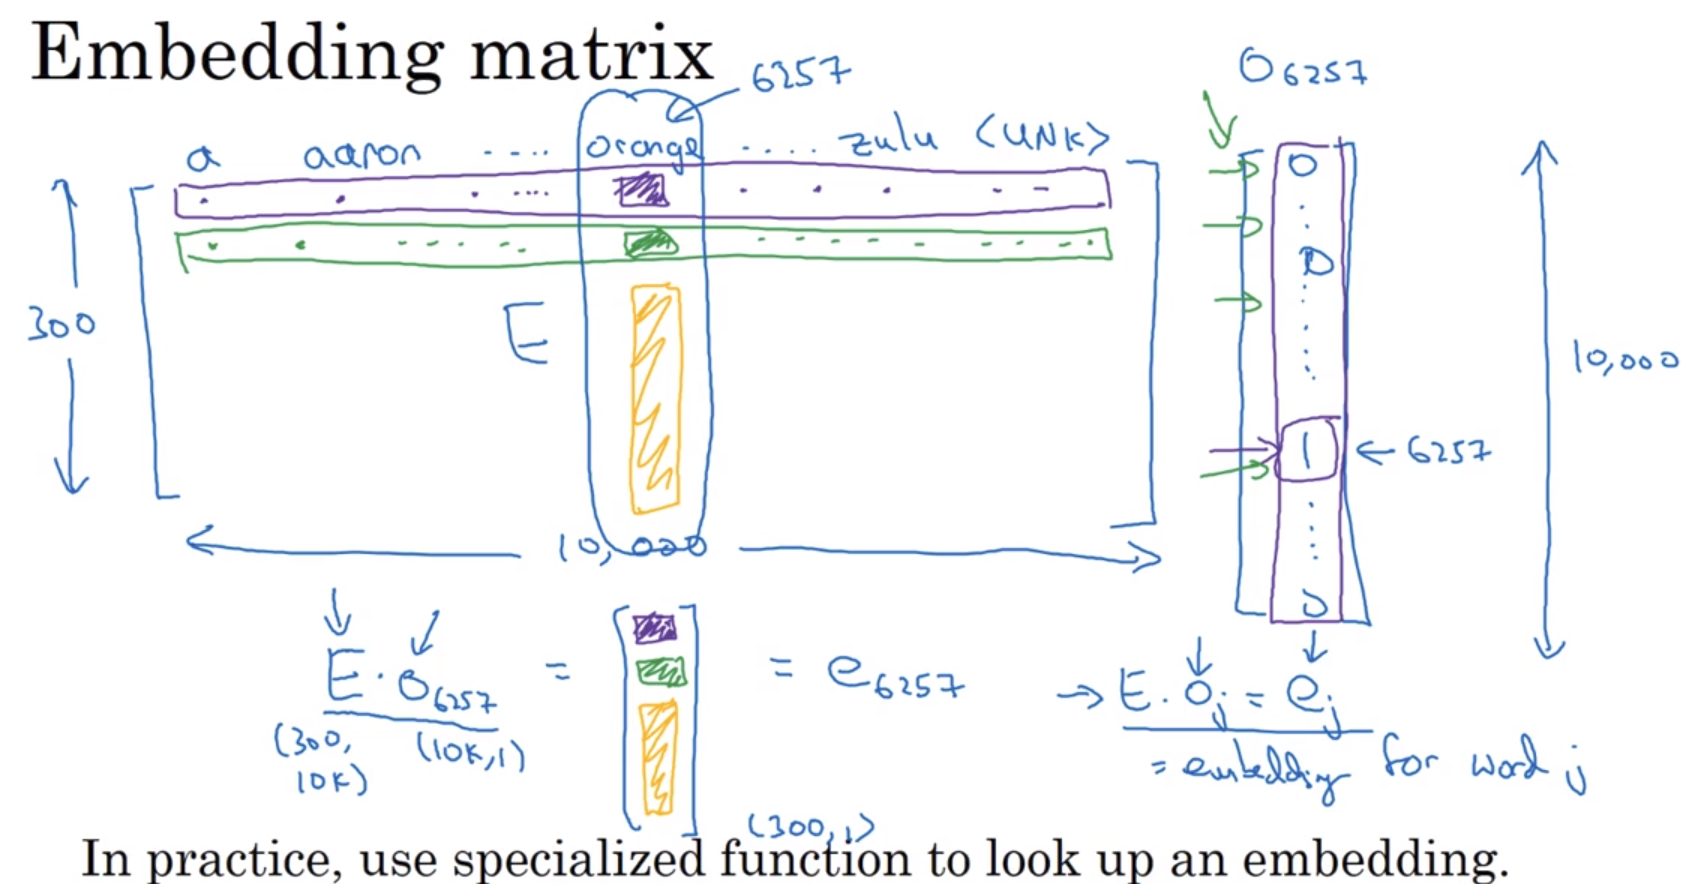 Embedding matrix
6257
O6257
a aaron .... orange .... zulu <UNK>
0
0
300
E
10,000
1 ← 6257
10,000
0
E · O6257 = [ ] = e6257
(300, 10K) (10K,1)
(300,1)
→ E · oj = ej
= embedding for word j
In practice, use specialized function to look up an embedding.